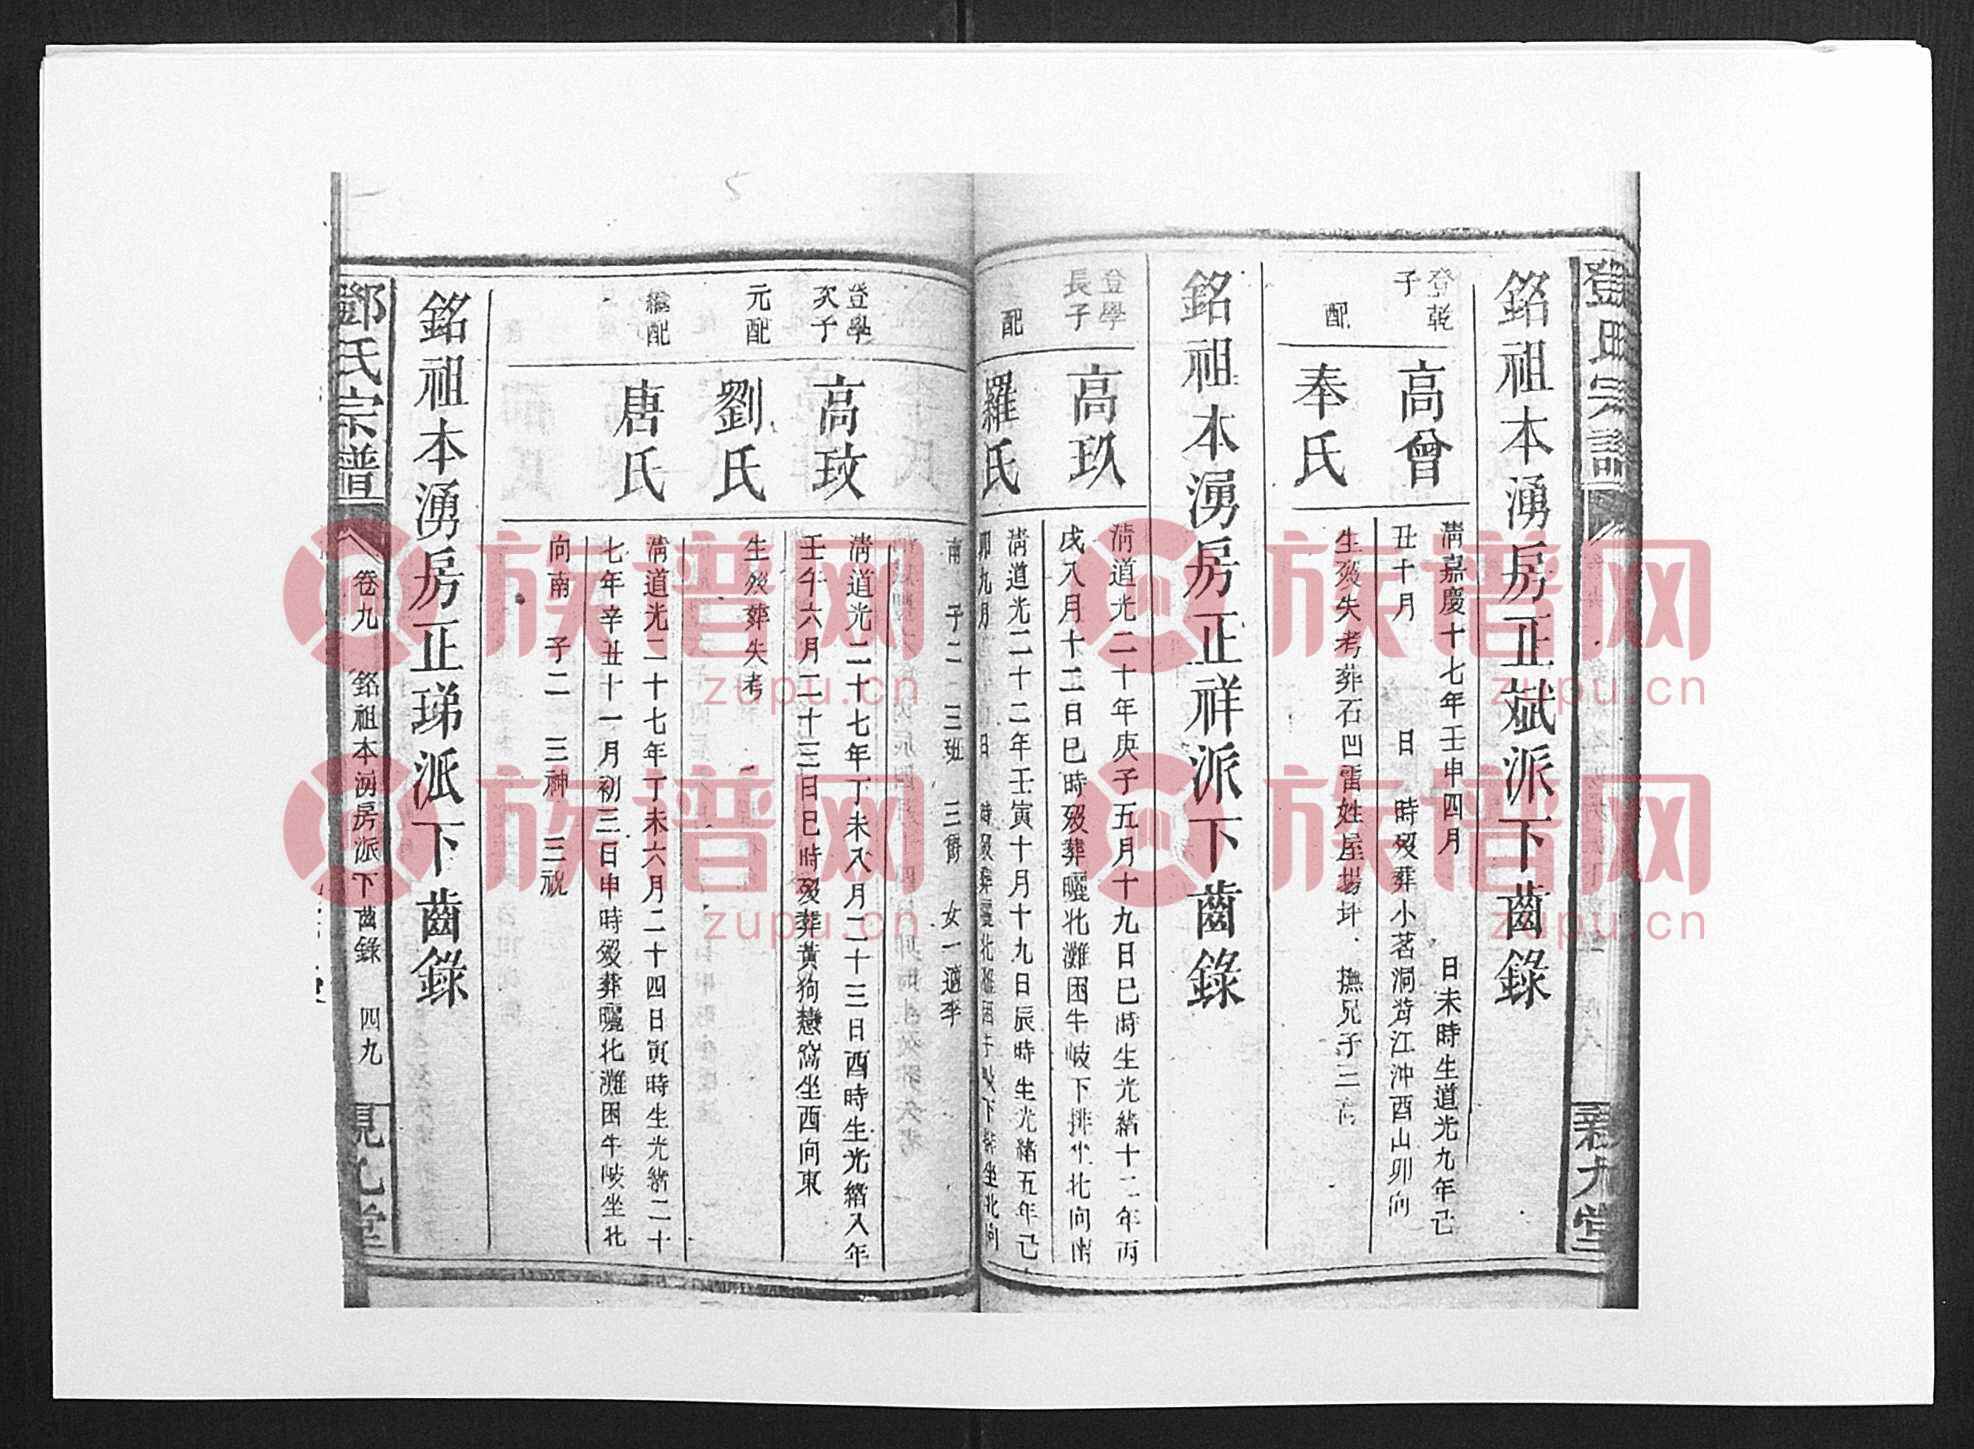 鄧氏宗譜
親九堂
銘祖本湧房正斌派下齒錄
登乾
子
高曾
清嘉慶十七年壬申四月 日未時生道光九年己
丑十月 日 時歿葬小茗洞 江沖酉山卯向
配
奉氏
生歿失考葬石凹雷姓屋場坪 撫兄子三
銘祖本湧房正祥派下齒錄
登學
長子
高玖
清道光二十年庚子五月十九日巳時生光緒十二年丙
戌八月十二日巳時歿葬曬北灘困牛岐下排坐北向南
配
羅氏
清道光二十二年壬寅十月十九日辰時生光緒五年己
卯九月 日 時歿葬曬北灘困牛岐下排坐北向
南 子二 三班 三爵 女一適李
登學
次子
高玟
清道光二十七年丁未八月二十三日酉時生光緒八年
壬午六月二十三日巳時歿葬黃狗戀窩坐西向東
元配
劉氏
生歿葬失考
繼配
唐氏
清道光二十七年丁未六月二十四日寅時生光緒二十
七年辛丑十一月初三日申時歿葬曬北灘困牛岐坐北
向南 子二 三神 三祝
銘祖本湧房正珶派下齒錄
鄧氏宗譜
卷九 銘祖本湧房派下齒錄 四九
親九堂
族谱网
zupu.cn
族谱网
zupu.cn
族谱网
zupu.cn
族谱网
zupu.cn